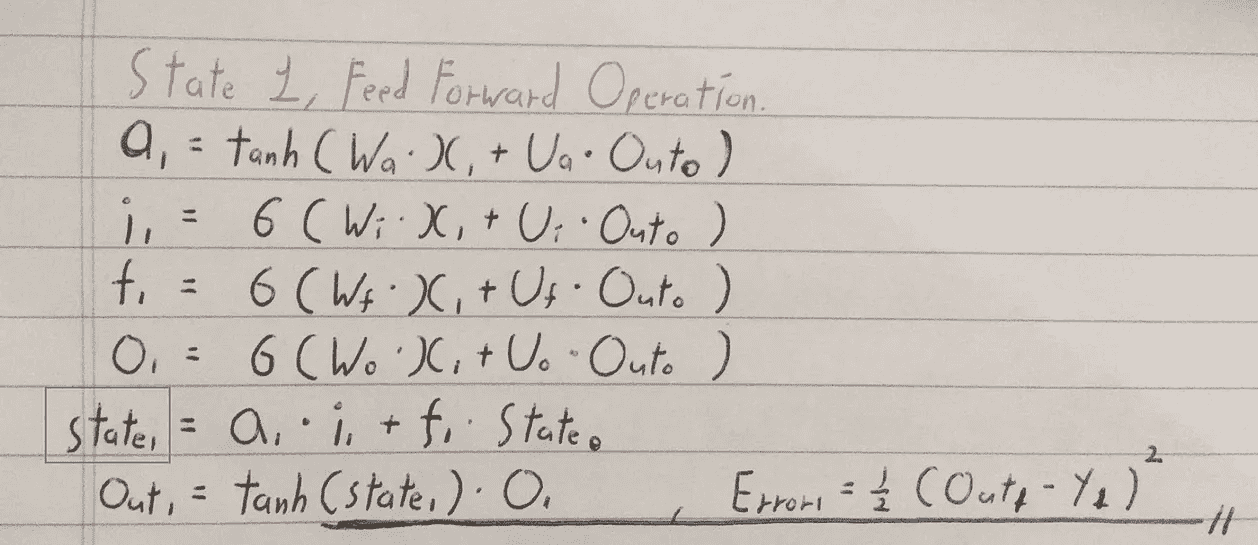 State 1, Feed Forward Operation.
a₁ = tanh ( Wa · X₁ + Ua · Out₀ )
i₁ = σ ( Wi · X₁ + Ui · Out₀ )
f₁ = σ ( Wf · X₁ + Uf · Out₀ )
O₁ = σ ( Wo · X₁ + Uo · Out₀ )
state₁ = a₁ · i₁ + f₁ · State₀
Out₁ = tanh (state₁) · O₁ , Error₁ = ½ (Out₁ - Y₁)²